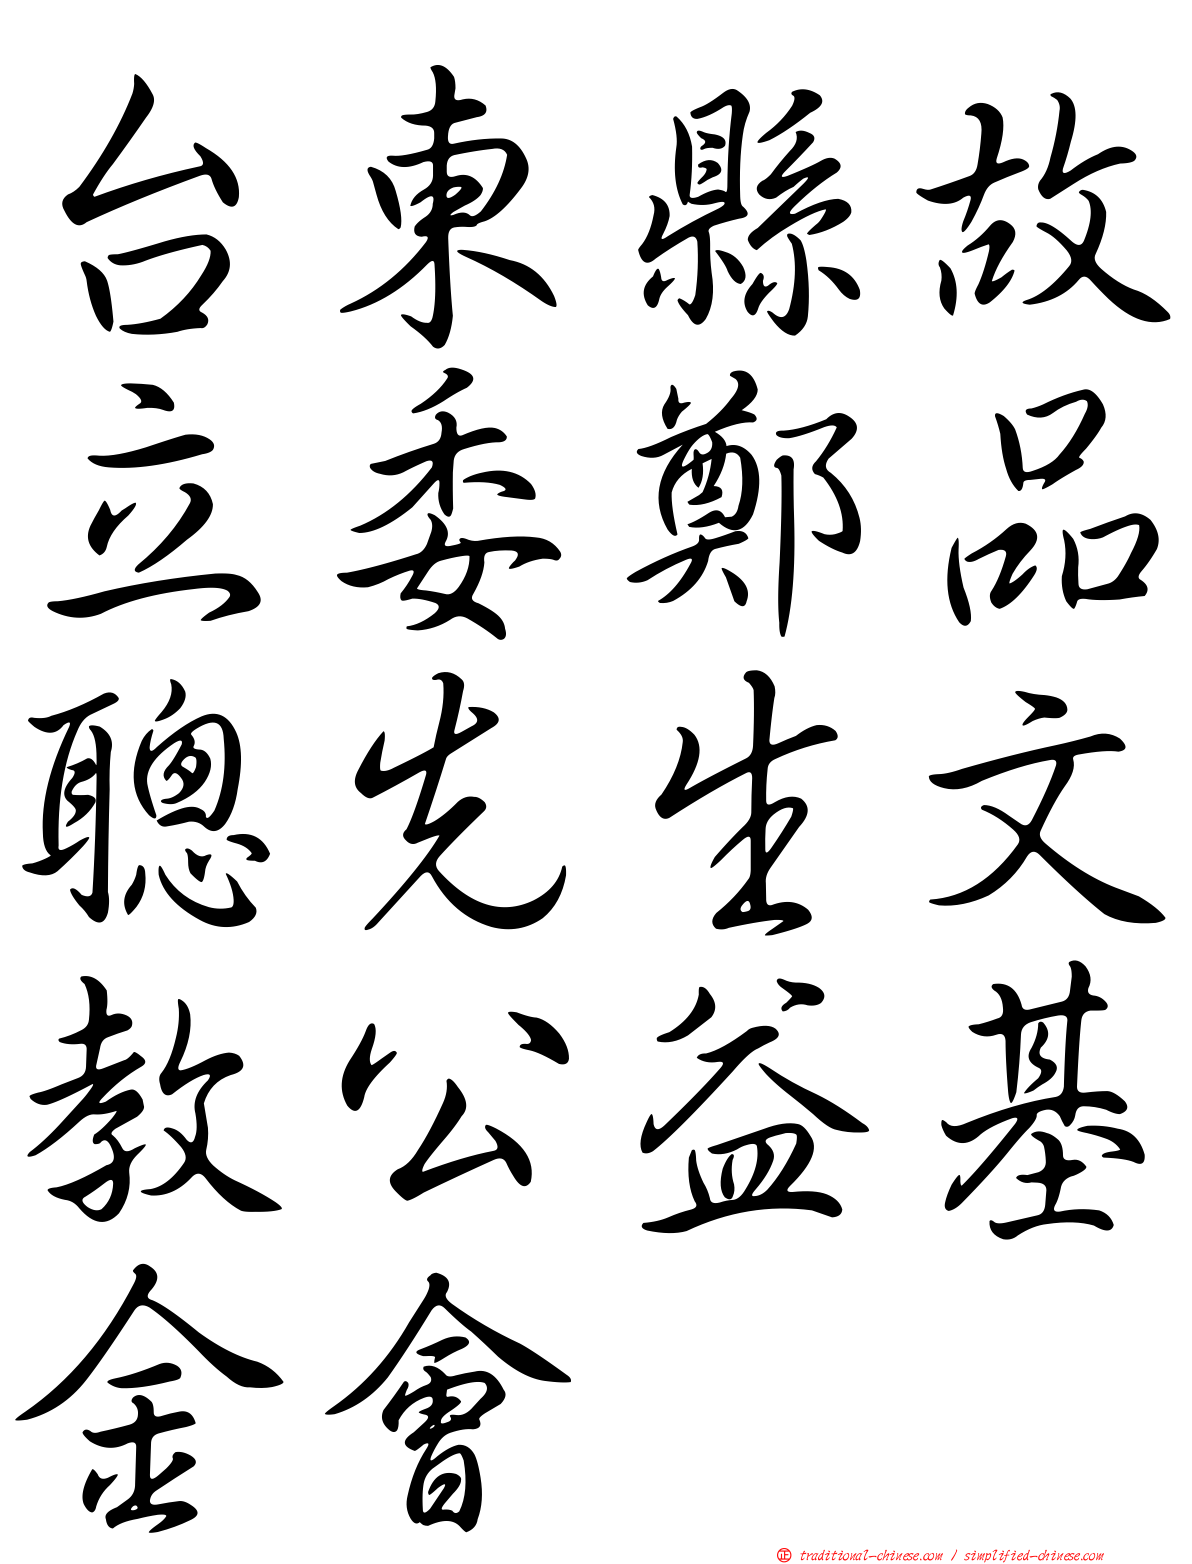 台東縣故
立委鄭品
聰先生文
教公益基
金會
正 traditional-chinese.com / simplified-chinese.com